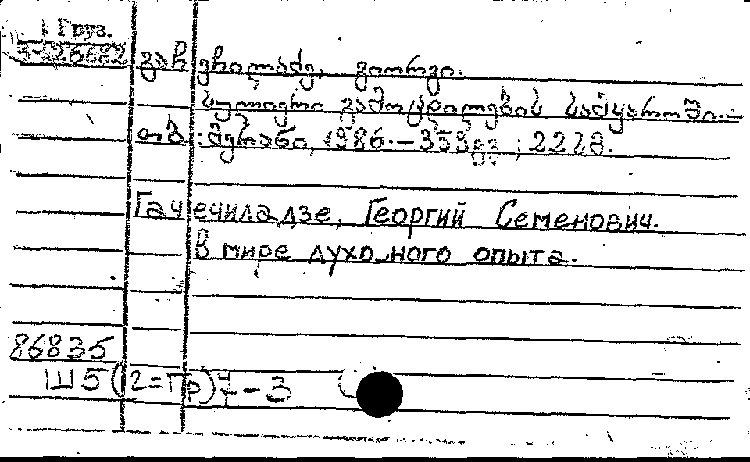 Груз.
გაჩეჩილაძე, გიორგი.
სულიერი გამოცდილების სამყაროში. —
თბ.: მერანი, 1986. — 359გვ ; 22სმ.
Гачечиладзе, Георгий Семенович.
В мире духовного опыта.
86835
Ш5(2=Гр)7-3